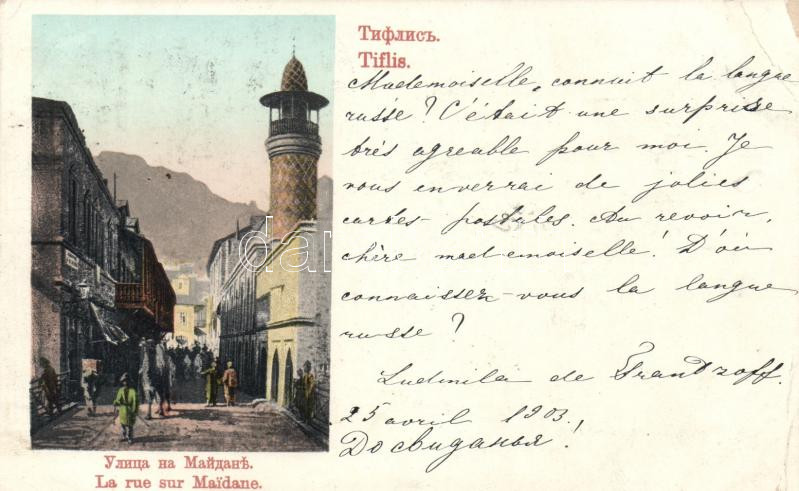 Тифлисъ.
Tiflis.
Mademoiselle, connait la langue
russe? C'était une surprise
très agreable pour moi. Je
vous enverrai de jolies
cartes-postales. Au revoir,
chère mademoiselle! D'où
connaissez-vous la langue
russe?
Ludmila de Frantzoff.
25 avril 1903.
До свиданья!
Улица на Майданѣ.
La rue sur Maïdane.